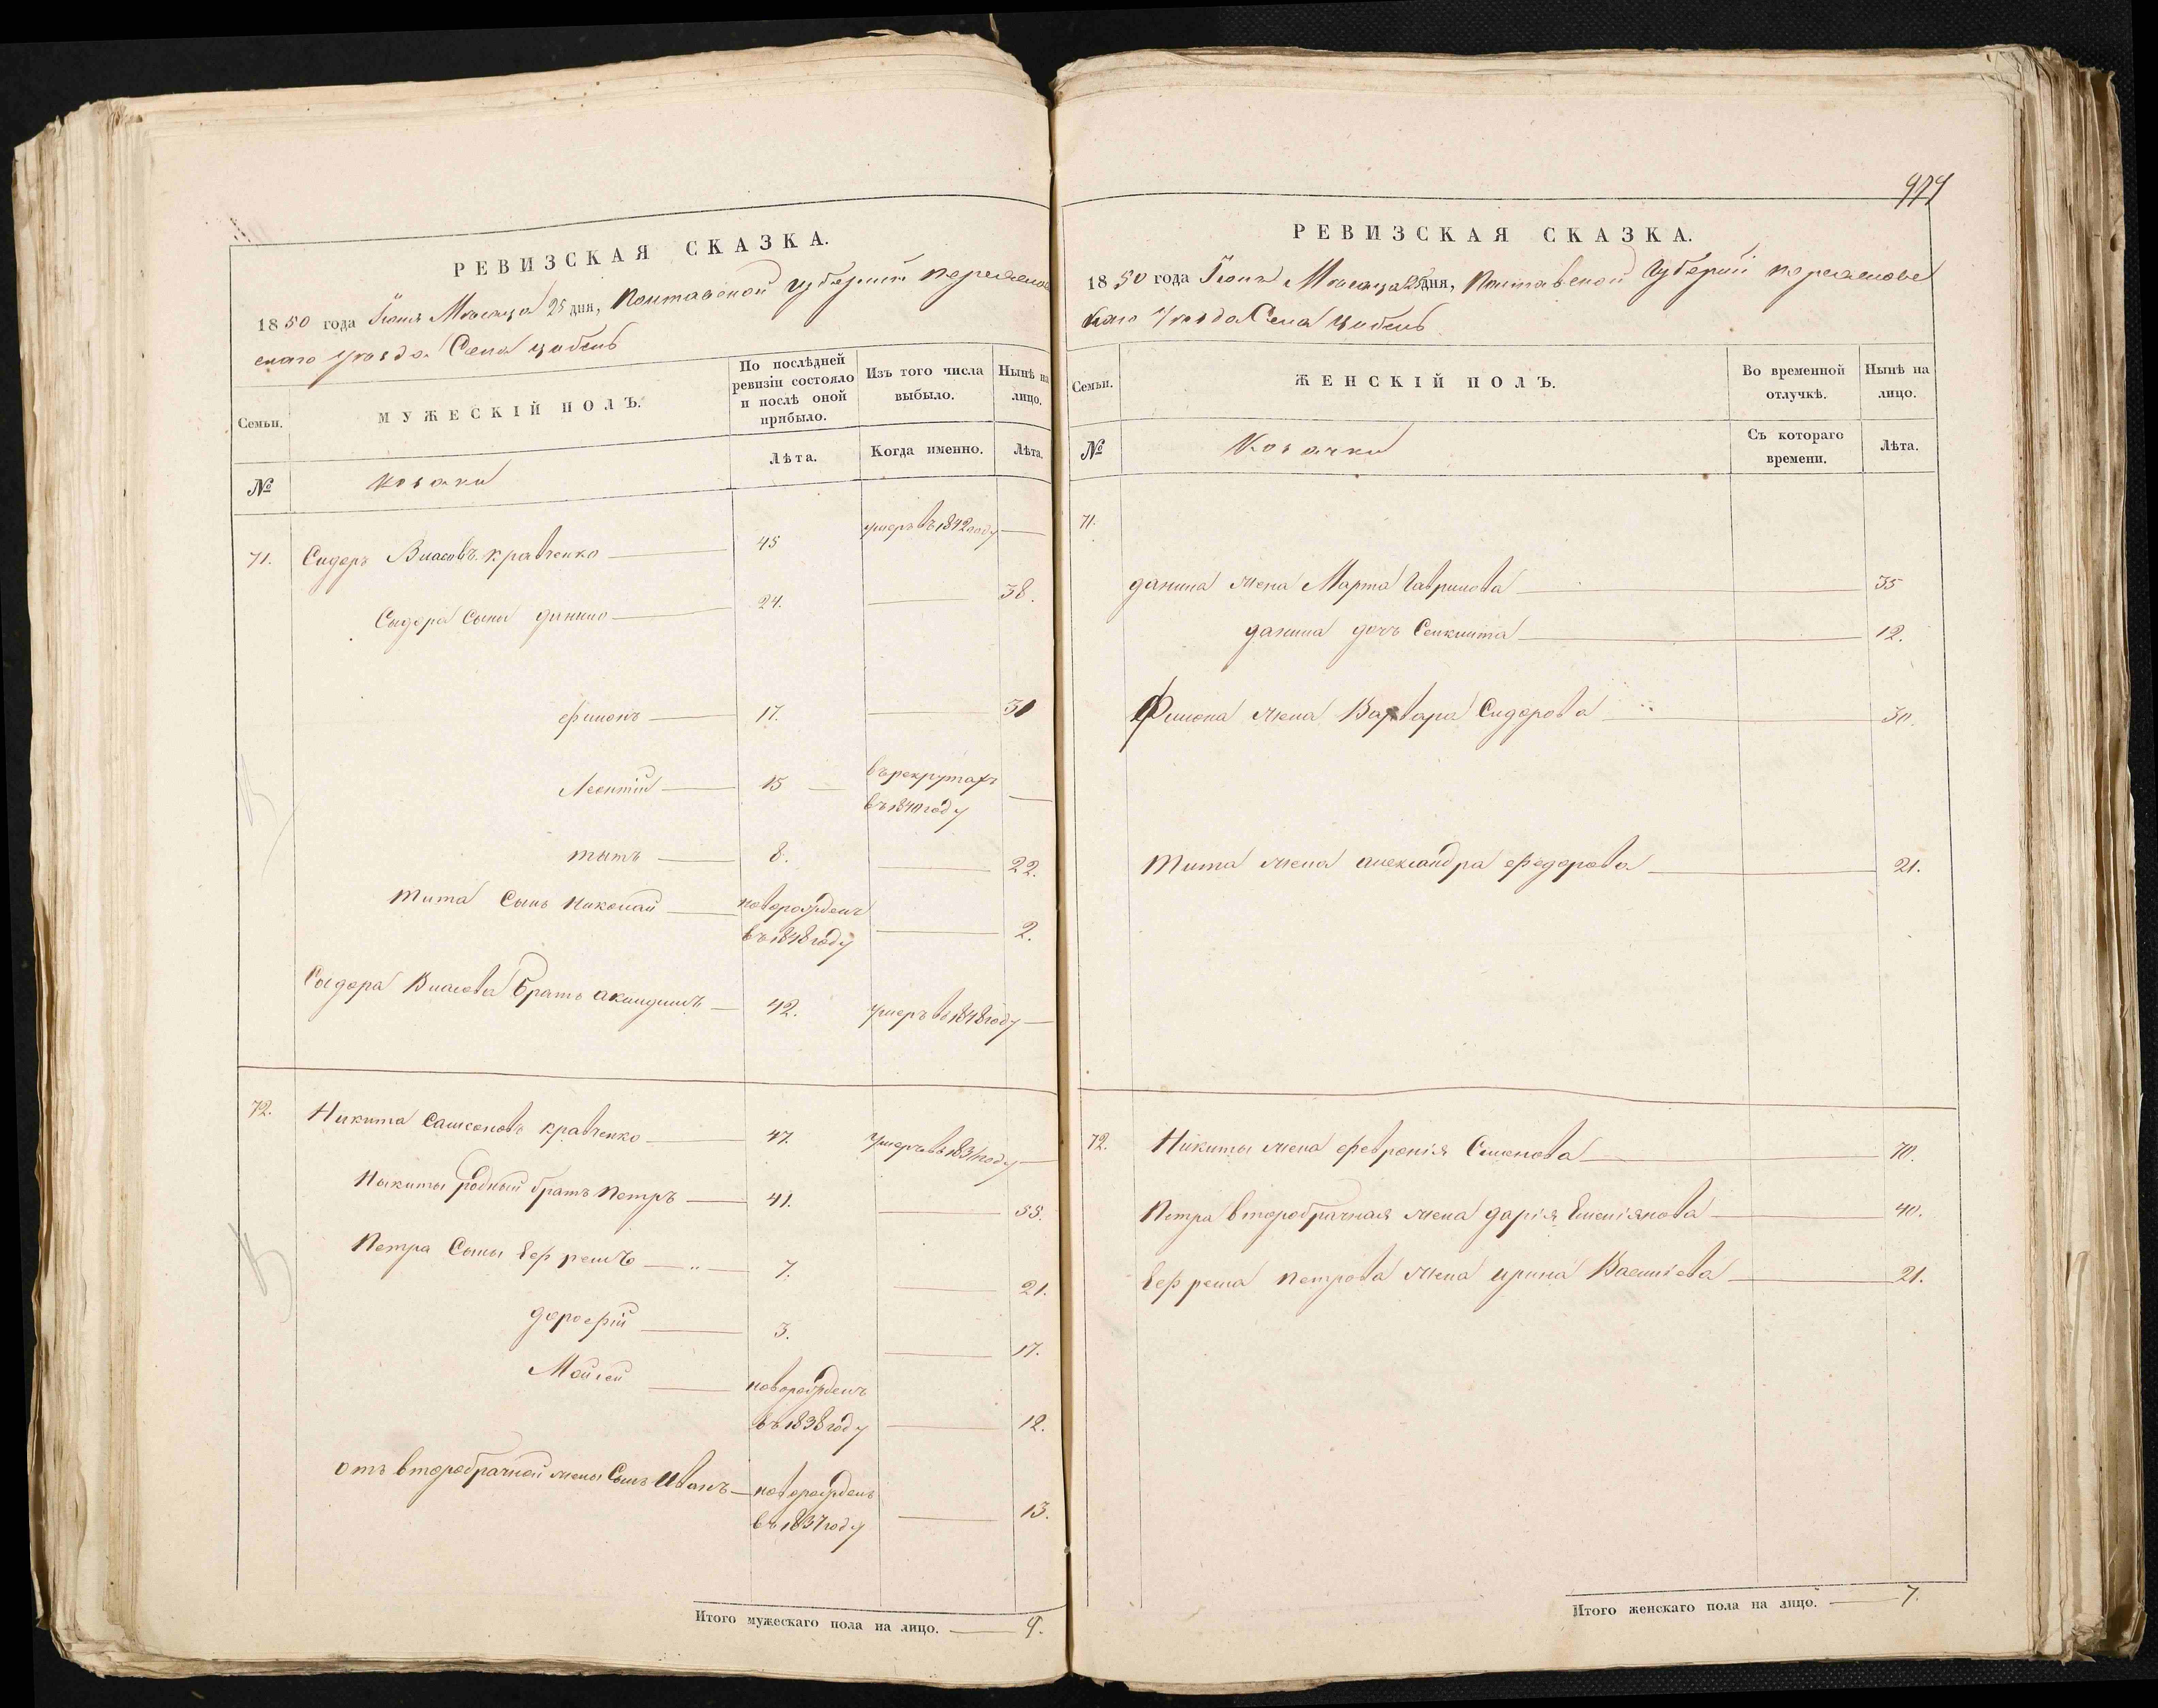 РЕВИЗСКАЯ СКАЗКА.
1850 года Іюня Мѣсяца 25 дня, Полтавской Губерніи Переяслов
скаго Уѣзда Села Цибель
Семьи.
МУЖЕСКІЙ ПОЛЪ.
По послѣдней ревизіи состояло и послѣ оной прибыло.
Изъ того числа выбыло.
Нынѣ на лицо.
№
козаки
Лѣта.
Когда именно.
Лѣта.
71. Сидоръ Власовъ Кравченко 45 умеръ въ 1842 году
Сидора Сыны данило 24. 38.
филонъ 17. 30
Леонтій 15 въ рекрутахъ
въ 1840 году
титъ 8. 22.
тита Сынъ Николай новорожденъ
въ 1848 году 2.
Сидора Власова братъ акиндинъ 42. умеръ въ 1848 году
72. Никита Самсоновъ кравченко 47. умеръ въ 1831 году
Никиты родный братъ Петръ 41. 55.
Петра Сыны Ефремъ 7. 21.
дорофій 3. 17.
Мойсей новорожденъ
въ 1838 году 12.
отъ второбрачной жены Сынъ Иванъ новорожденъ
въ 1837 году 13.
Итого мужескаго пола на лицо. 9.
РЕВИЗСКАЯ СКАЗКА.
1850 года Іюня Мѣсяца 25 дня, Полтавской Губерніи Переяслове
каго Уѣзда Села Цибель
Семьи.
ЖЕНСКІЙ ПОЛЪ.
Во временной отлучкѣ.
Нынѣ на лицо.
№
Козачки
Съ котораго времени.
Лѣта.
71.
данила жена Марта Гаврилова 35
данила дочь 12.
Филона жена Варвара Сидорова 30.
Тита жена александра федорова 21.
72. Никиты жена февронія Семенова 70.
Петра второбрачная жена дарія Емеліянова 40.
Ефрема Петрова жена ирина Василіева 21.
Итого женскаго пола на лицо. 7.